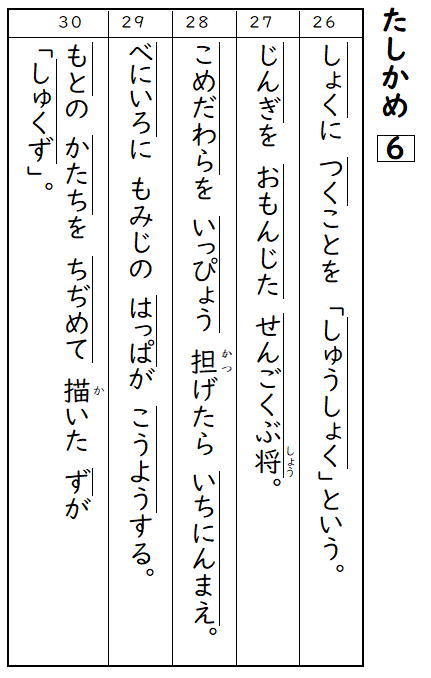 たしかめ 6
26
しょくに つくことを 「しゅうしょく」という。
27
じんぎを おもんじた せんごくぶ将。
しょう
28
こめだわらを いっぴょう 担げたら いちにんまえ。
かつ
29
べにいろに もみじの はっぱが こうようする。
30
もとの かたちを ちぢめて 描いた ずが
か
「しゅくず」。